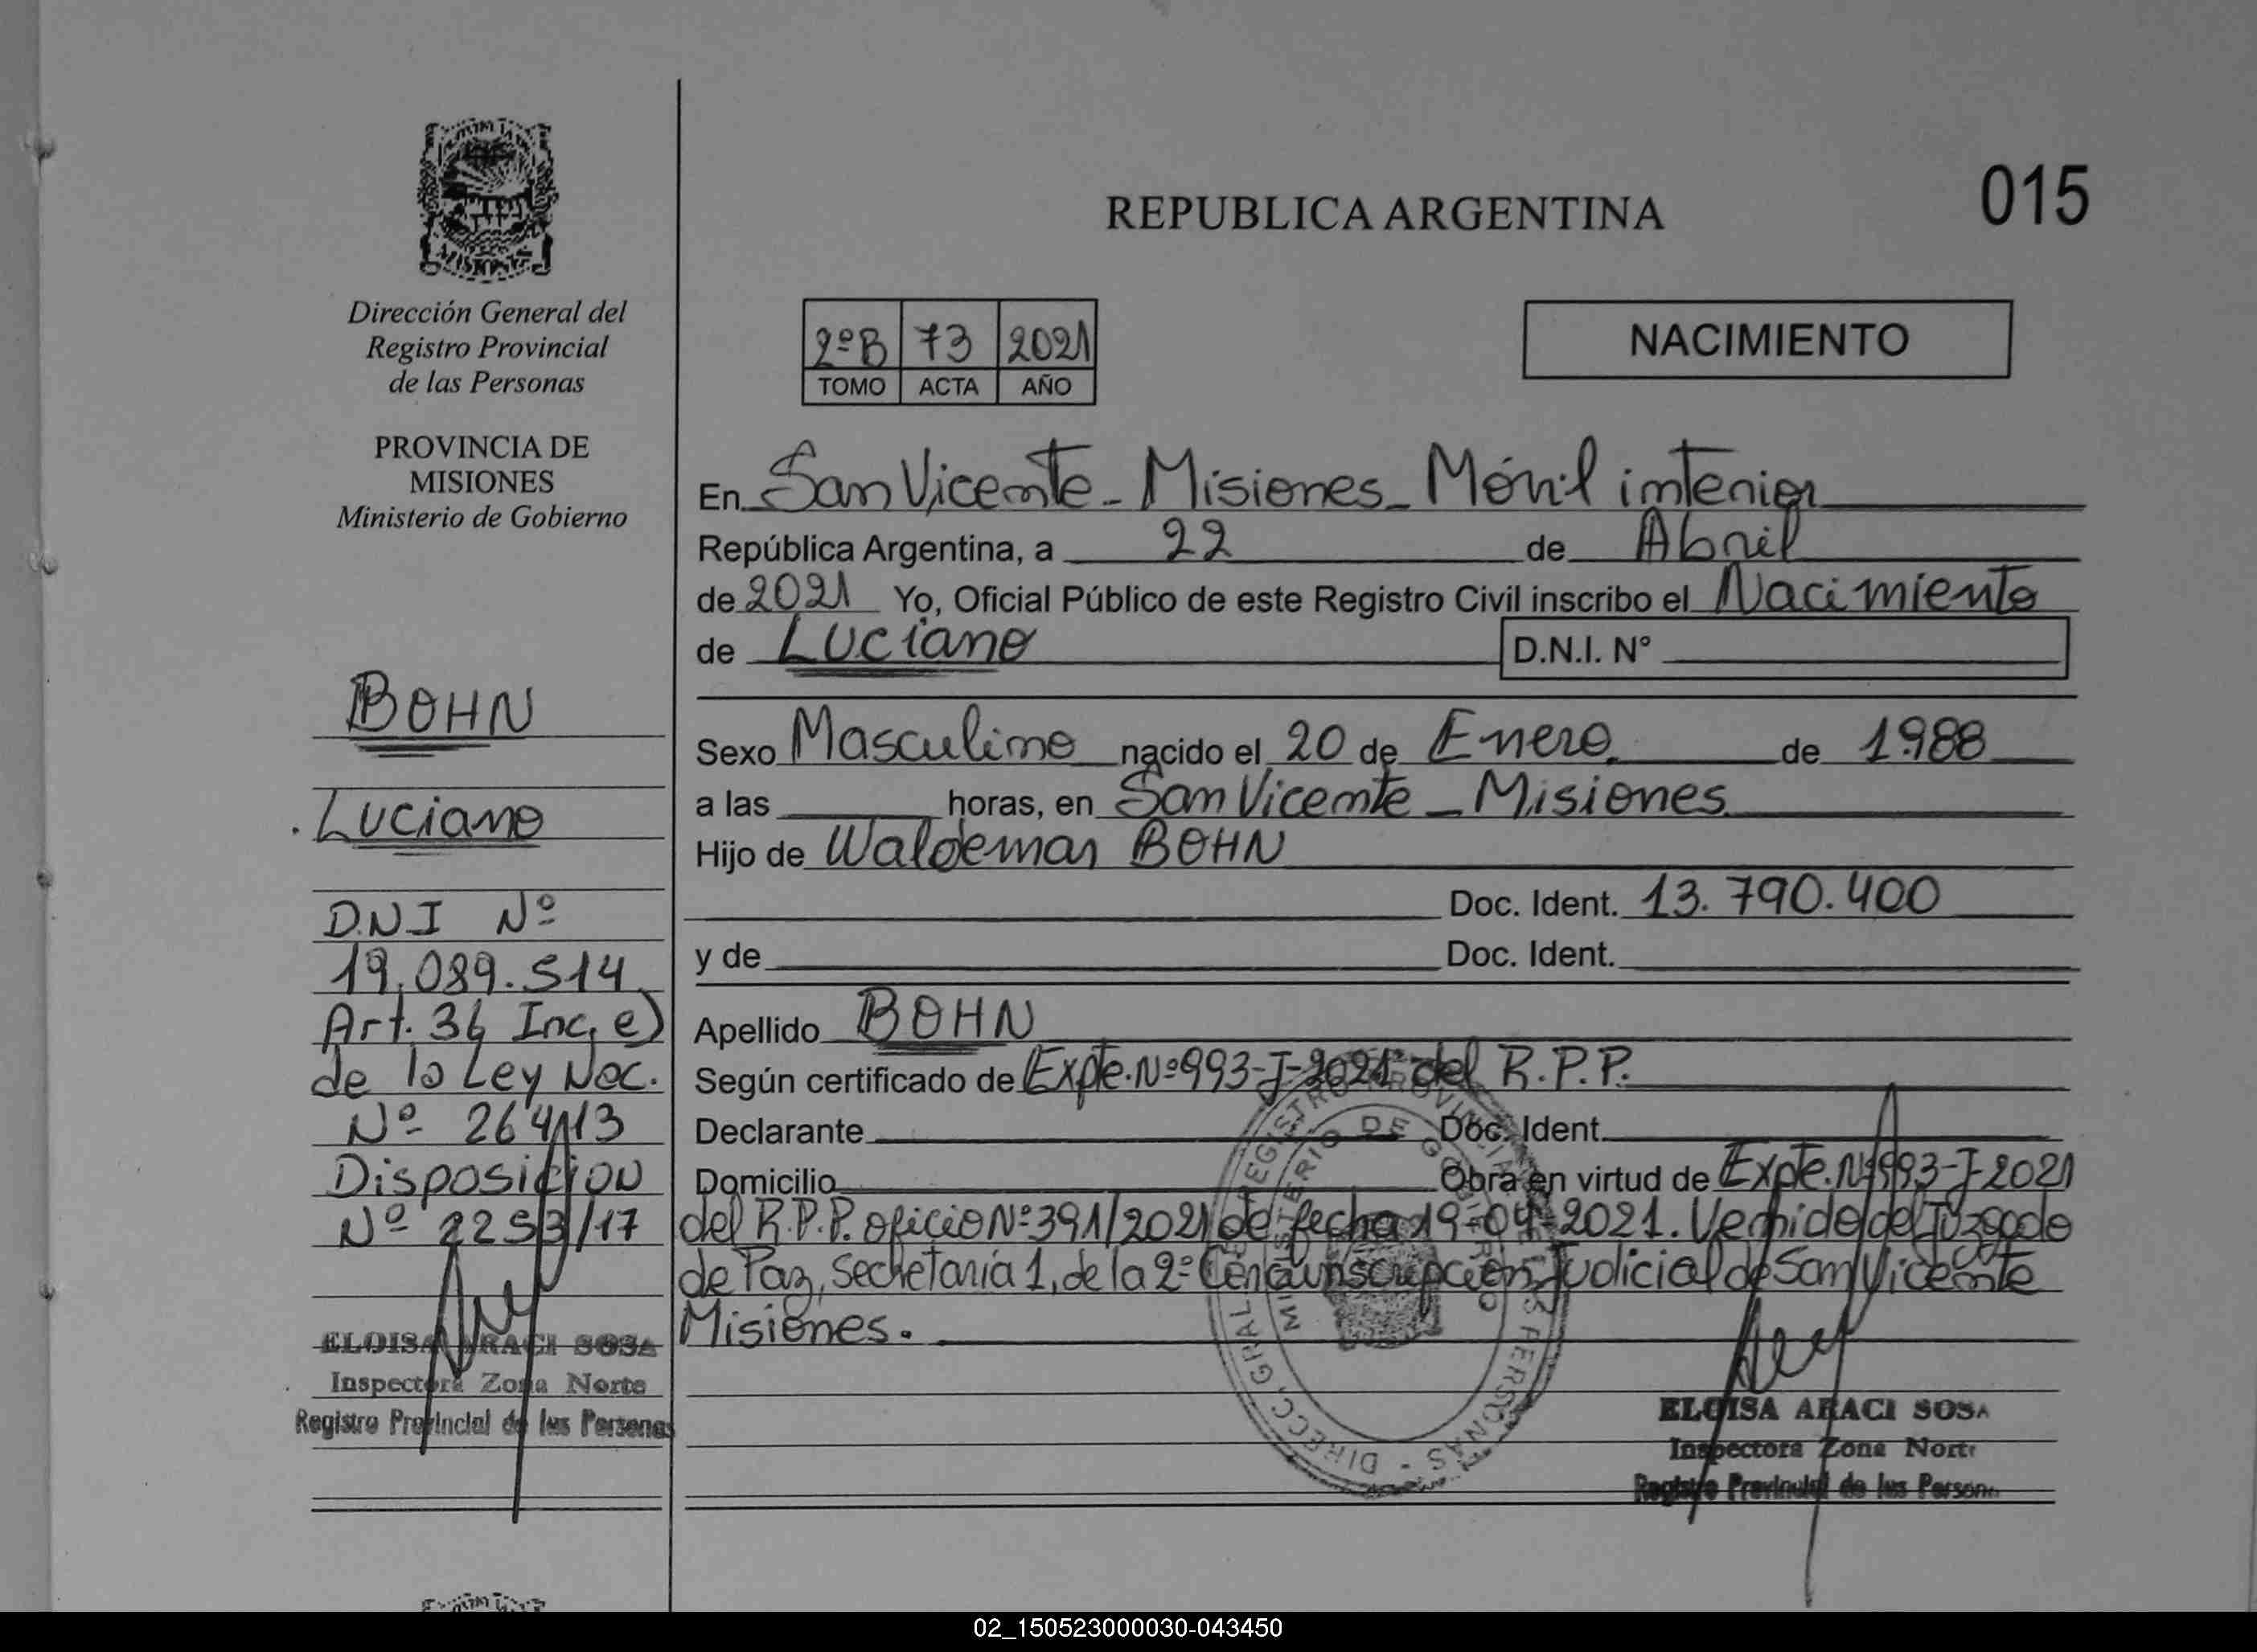 Dirección General del
Registro Provincial
de las Personas
PROVINCIA DE
MISIONES
Ministerio de Gobierno
BOHN
Luciano
D.N.I Nº
19.089.514
Art. 36 Inc. e)
de la Ley Nac.
Nº 26413
Disposición
Nº 2253/17
ELOISA ARACI SOSA
Inspectora Zona Norte
Registro Provincial de las Personas
REPUBLICA ARGENTINA
015
2ºB 73 2021
TOMO ACTA AÑO
NACIMIENTO
En San Vicente - Misiones - Móvil interior
República Argentina, a 22 de Abril
de 2021 Yo, Oficial Público de este Registro Civil inscribo el Nacimiento
de Luciano D.N.I. Nº
Sexo Masculino nacido el 20 de Enero de 1988
a las horas, en San Vicente - Misiones
Hijo de Waldemar BOHN
Doc. Ident. 13.790.400
y de Doc. Ident.
Apellido BOHN
Según certificado de Expte. Nº 993-J-2021 del R.P.P.
Declarante Doc. Ident.
Domicilio Obra en virtud de Expte. Nº 993-J-2021
del R.P.P. oficio Nº 391/2021 de fecha 19-04-2021. Venido del Juzgado
de Paz, Secretaría 1, de la 2º Circunscripción Judicial de San Vicente
Misiones.
DIRECC. GRAL. REGISTRO PROVINCIAL DE LAS PERSONAS
MINISTERIO DE GOBIERNO
ELOISA ARACI SOSA
Inspectora Zona Norte
Registro Provincial de las Person
02_150523000030-043450